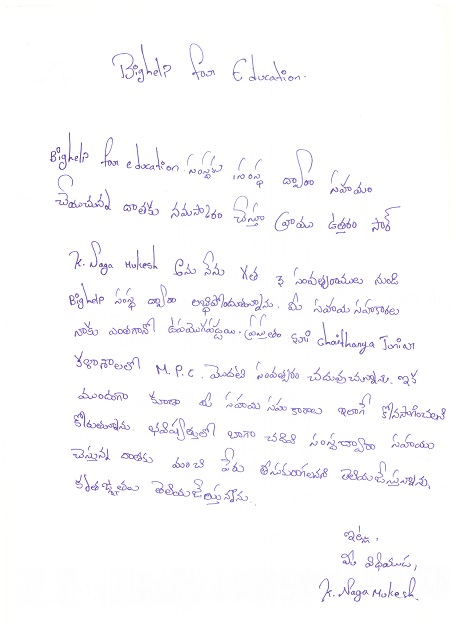 Bighelp for Education.
Bighelp for education సంస్థకు సంస్థ ద్వారా సహాయం
చేయుచున్న దాతకు నమస్కారం చేస్తూ వ్రాయు ఉత్తరం సార్
K. Naga Mukesh అను నేను గత 3 సంవత్సరాములు నుండి
Bighelp సంస్థ ద్వారా లబ్ధిపొందుతున్నాను. మీ సహాయ సహకారాలు
నాకు ఎంతగానో ఉపయోగపడ్డాయి. ప్రస్తుతం Sri Chaithanya Junior
కళాశాలలో M.P.C. మొదటి సంవత్సరం చదువుచున్నాను. ఇక
ముందుగా కూడా ఈ సహాయ సహకారాలు ఇలాగే కొనసాగించాలని
కోరుతున్నాను. భవిష్యత్తులో బాగా చదివి సంస్థద్వారా సహాయం
చేస్తున్న దాతకు మంచి పేరు తీసుకురాగలనని తెలియజేస్తున్నాను.
కృతజ్ఞతలు తెలియజేస్తున్నాను.
ఇట్లు,
మీ విధేయుడు,
K. Naga Mukesh.